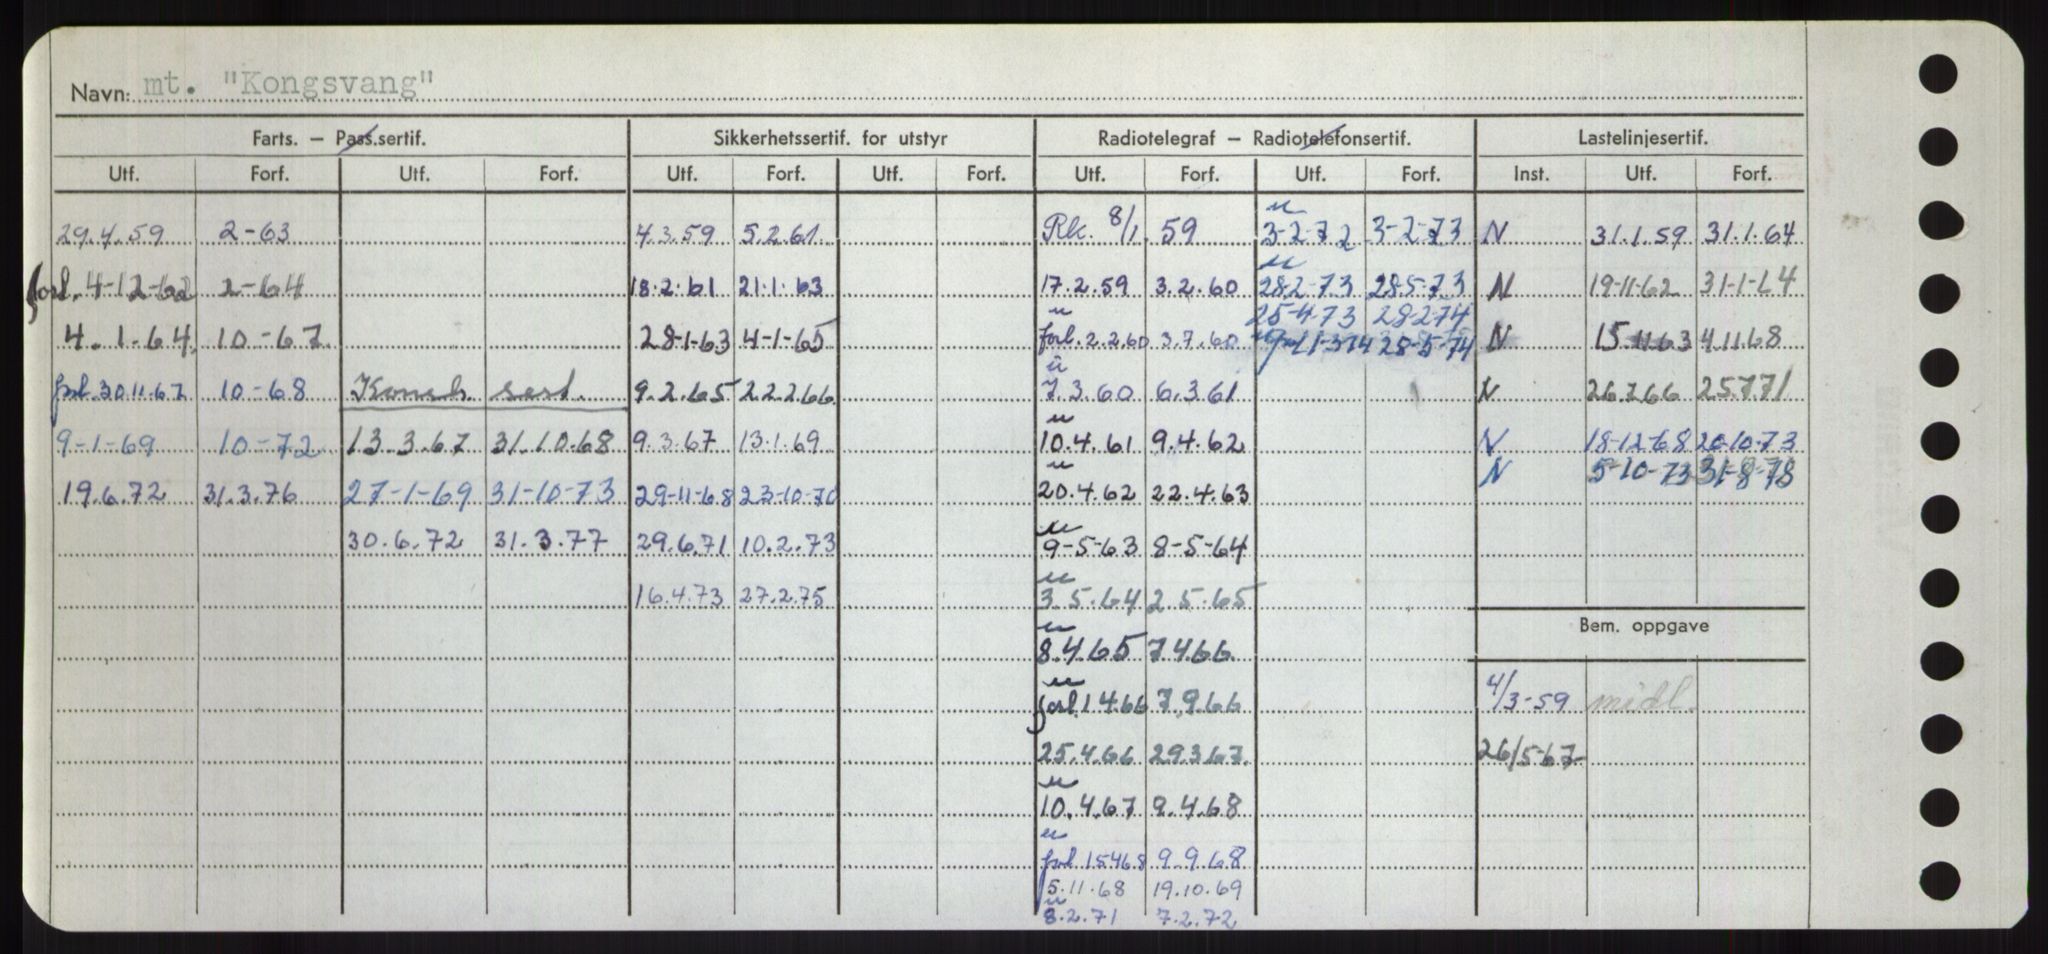 Navn: mt. "Kongsvang"
Farts. — Pass.sertif. Sikkerhetssertif. for utstyr Radiotelegraf — Radiotelefonsertif. Lastelinjesertif.
Utf. Forf. Utf. Forf. Utf. Forf. Utf. Forf. Utf. Forf. Utf. Forf. Inst. Utf. Forf.
u
29.4.59 2-63 4.3.59 5.2.61 Rk. 8/1. 59 3-2-72 3-2-73 N 31.1.59 31.1.64
u
forl. 4-12-62 2-64 18.2.61 21.1.63 17.2.59 3.2.60 28-2-73 28-5-73 N 19-11-62 31-1-64
u 25-4-73 28-2-74
4.1.64 10-67 28-1-63 4-1-65 forl. 2.2.60 3.7.60 28-5-74 N 15-11-63 4.11.68
u
forl. 30.11.67 10-68 Konsb. sert. 9.2.65 22.2.66 7.3.60 6.3.61 N 26.7.66 25.7.71
u
9-1-69 10-72 13.3.67 31.10.68 9.3.67 13.1.69 10.4.61 9.4.62 N 18-12-68 20-10-73
u N 5-10-73 31-8-78
19.6.72 31.3.76 27-1-69 31-10-73 29-11-68 23-10-70 20.4.62 22.4.63
u
30.6.72 31.3.77 29.6.71 10.2.73 9-5-63 8-5-64
u
16.4.73 27.2.75 3.5.64 2.5.65
u Bem. oppgave
8.4.65 7.4.66
u
forl. 1.4.66 7.9.66 4/3-59 midl.
25.4.66 29.3.67 26/5-67
u
10.4.67 9.4.68
u
forl. 15.4.68 9.9.68
5.11.68 19.10.69
u
8.2.71 7.2.72